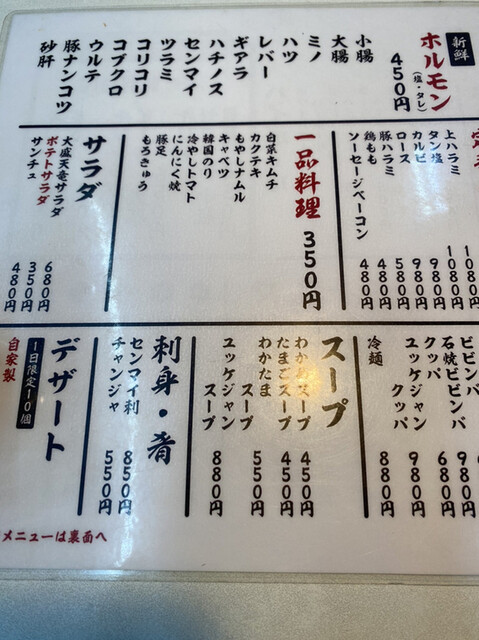 新鮮
ホルモン
(塩・タレ)
450円
小腸
大腸
ミノ
ハツ
レバー
ギアラ
ハチノス
センマイ
ツラミ
コリコリ
コブクロ
ウルテ
豚ナンコツ
砂肝
上ハラミ 1080円
タン塩 1080円
カルビ 980円
ロース 980円
豚ハラミ 580円
鶏もも 480円
ソーセージベーコン 480円
一品料理 350円
白菜キムチ
カクテキ
もやしナムル
キャベツ
韓国のり
冷やしトマト
にんにく焼
豚足
もろきゅう
サラダ
大盛天竜サラダ 680円
ポテトサラダ 350円
サンチュ 480円
ビビンバ
石焼ビビンバ 980円
クッパ 680円
ユッケジャン
クッパ 980円
冷麺 880円
スープ
わかめスープ 450円
たまごスープ 450円
わかたま
スープ 550円
ユッケジャン
スープ 880円
刺身・肴
センマイ刺 850円
チャンジャ 550円
デザート
1日限定10個
自家製
メニューは裏面へ